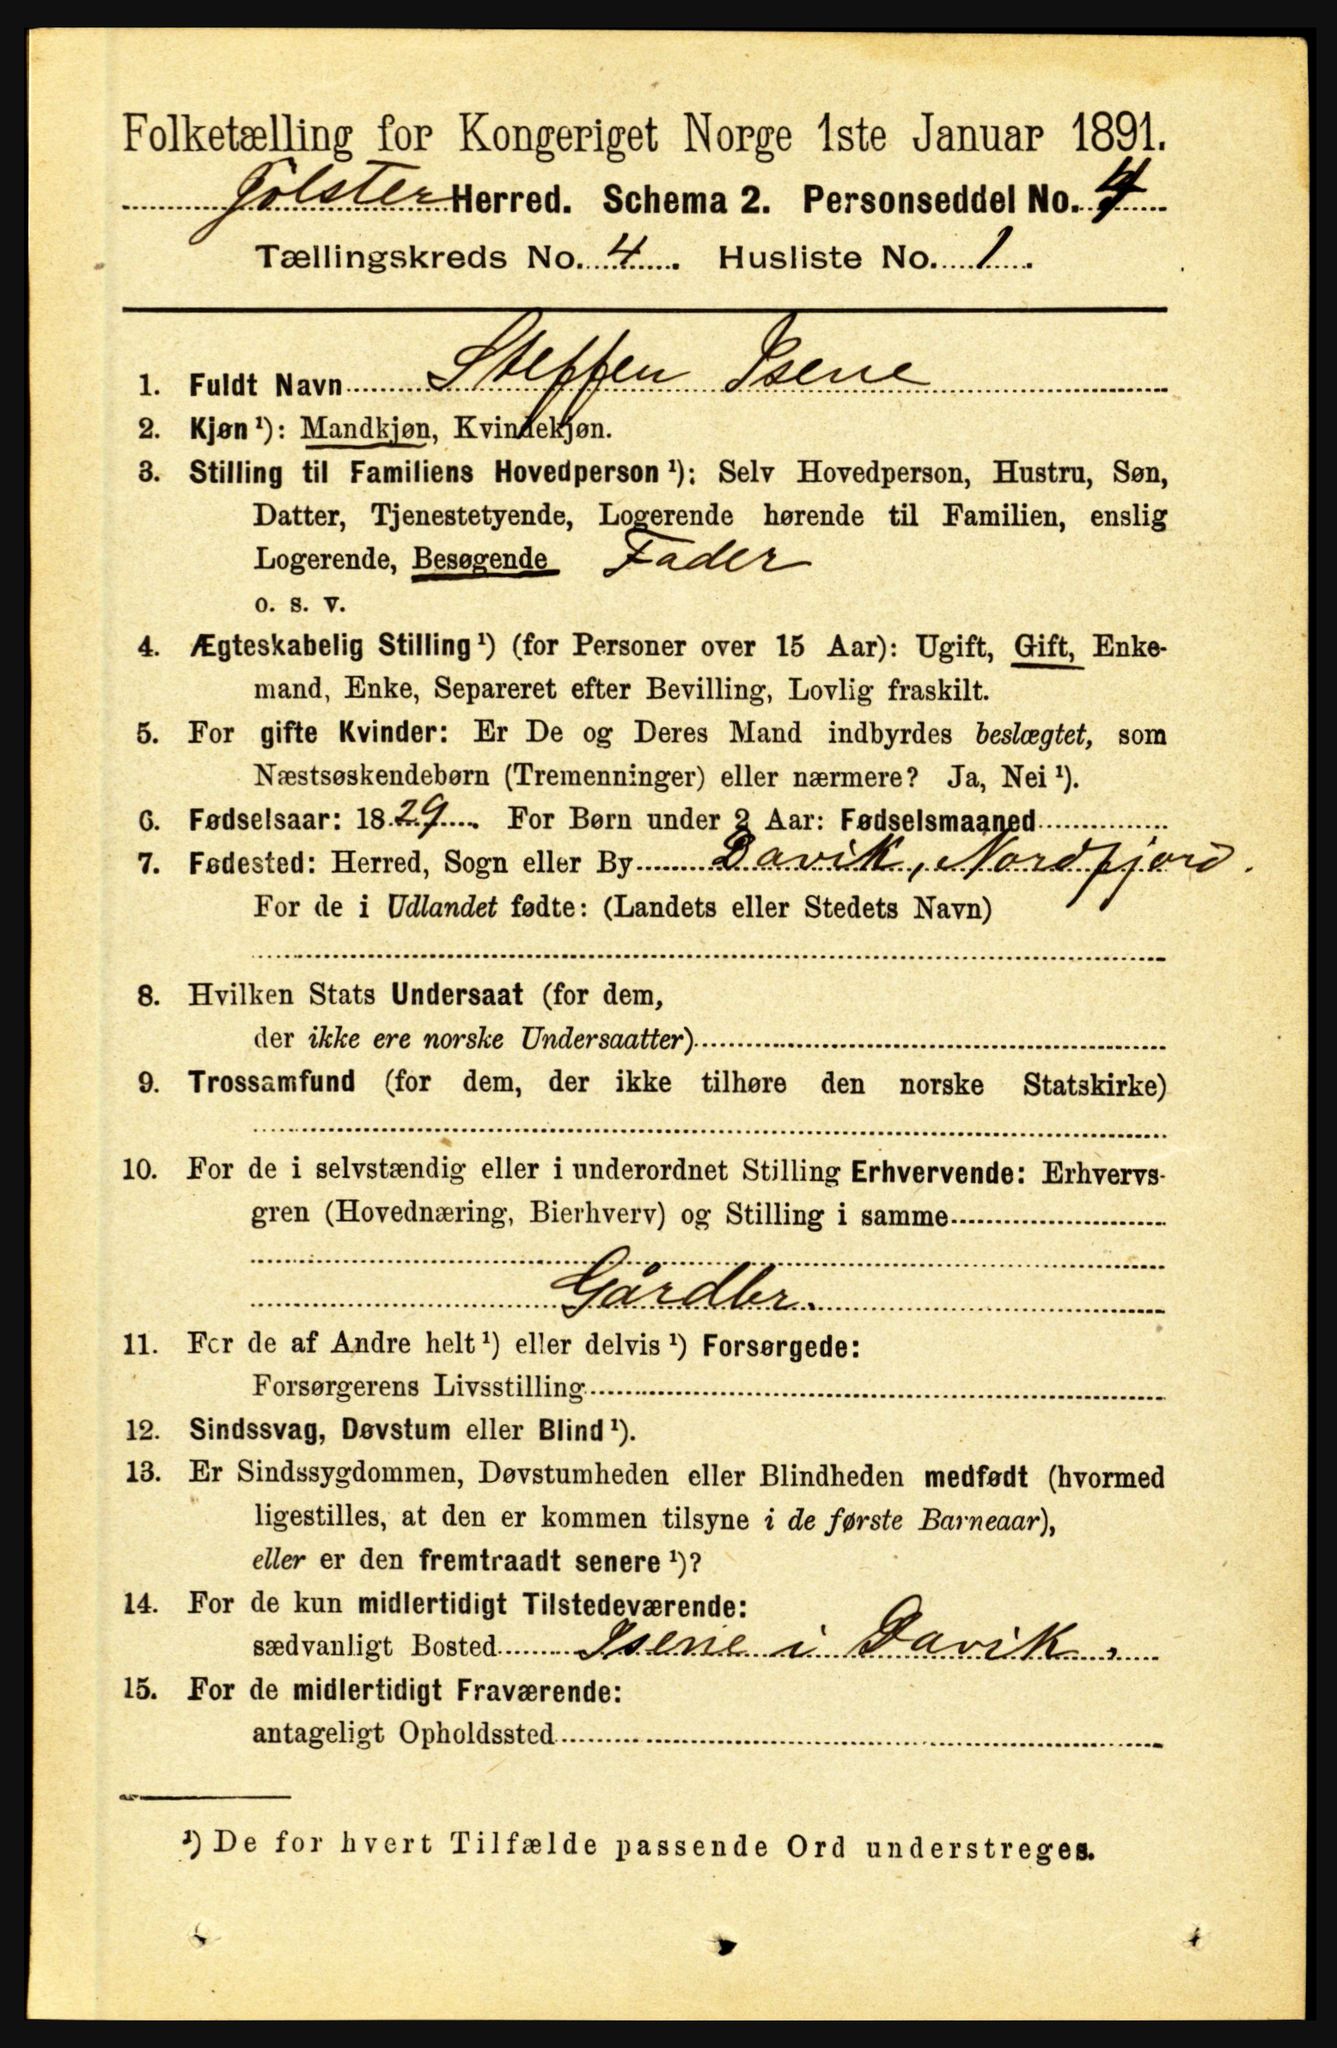 Folketælling for Kongeriget Norge 1ste Januar 1891.
Jølster Herred. Schema 2. Personseddel No. 4
Tællingskreds No. 4. Husliste No. 1.
1. Fuldt Navn Steffen Isene
2. Kjøn ¹): Mandkjøn, Kvindekjøn.
3. Stilling til Familiens Hovedperson ¹): Selv Hovedperson, Hustru, Søn,
Datter, Tjenestetyende, Logerende hørende til Familien, enslig
Logerende, Besøgende Fader
o. s. v.
4. Ægteskabelig Stilling ¹) (for Personer over 15 Aar): Ugift, Gift, Enke-
mand, Enke, Separeret efter Bevilling, Lovlig fraskilt.
5. For gifte Kvinder: Er De og Deres Mand indbyrdes beslægtet, som
Næstsøskendebørn (Tremenninger) eller nærmere? Ja, Nei ¹).
6. Fødselsaar: 1829. For Børn under 2 Aar: Fødselsmaaned
7. Fødested: Herred, Sogn eller By Davik, Nordfjord.
For de i Udlandet fødte: (Landets eller Stedets Navn)
8. Hvilken Stats Undersaat (for dem,
der ikke ere norske Undersaatter)
9. Trossamfund (for dem, der ikke tilhøre den norske Statskirke)
10. For de i selvstændig eller i underordnet Stilling Erhvervende: Erhvervs-
gren (Hovednæring, Bierhverv) og Stilling i samme
Gårdbr.
11. For de af Andre helt ¹) eller delvis ¹) Forsørgede:
Forsørgerens Livsstilling
12. Sindssvag, Døvstum eller Blind ¹).
13. Er Sindssygdommen, Døvstumheden eller Blindheden medfødt (hvormed
ligestilles, at den er kommen tilsyne i de første Barneaar),
eller er den fremtraadt senere ¹)?
14. For de kun midlertidigt Tilstedeværende:
sædvanligt Bosted Isene i Davik.
15. For de midlertidigt Fraværende:
antageligt Opholdssted
¹) De for hvert Tilfælde passende Ord understreges.